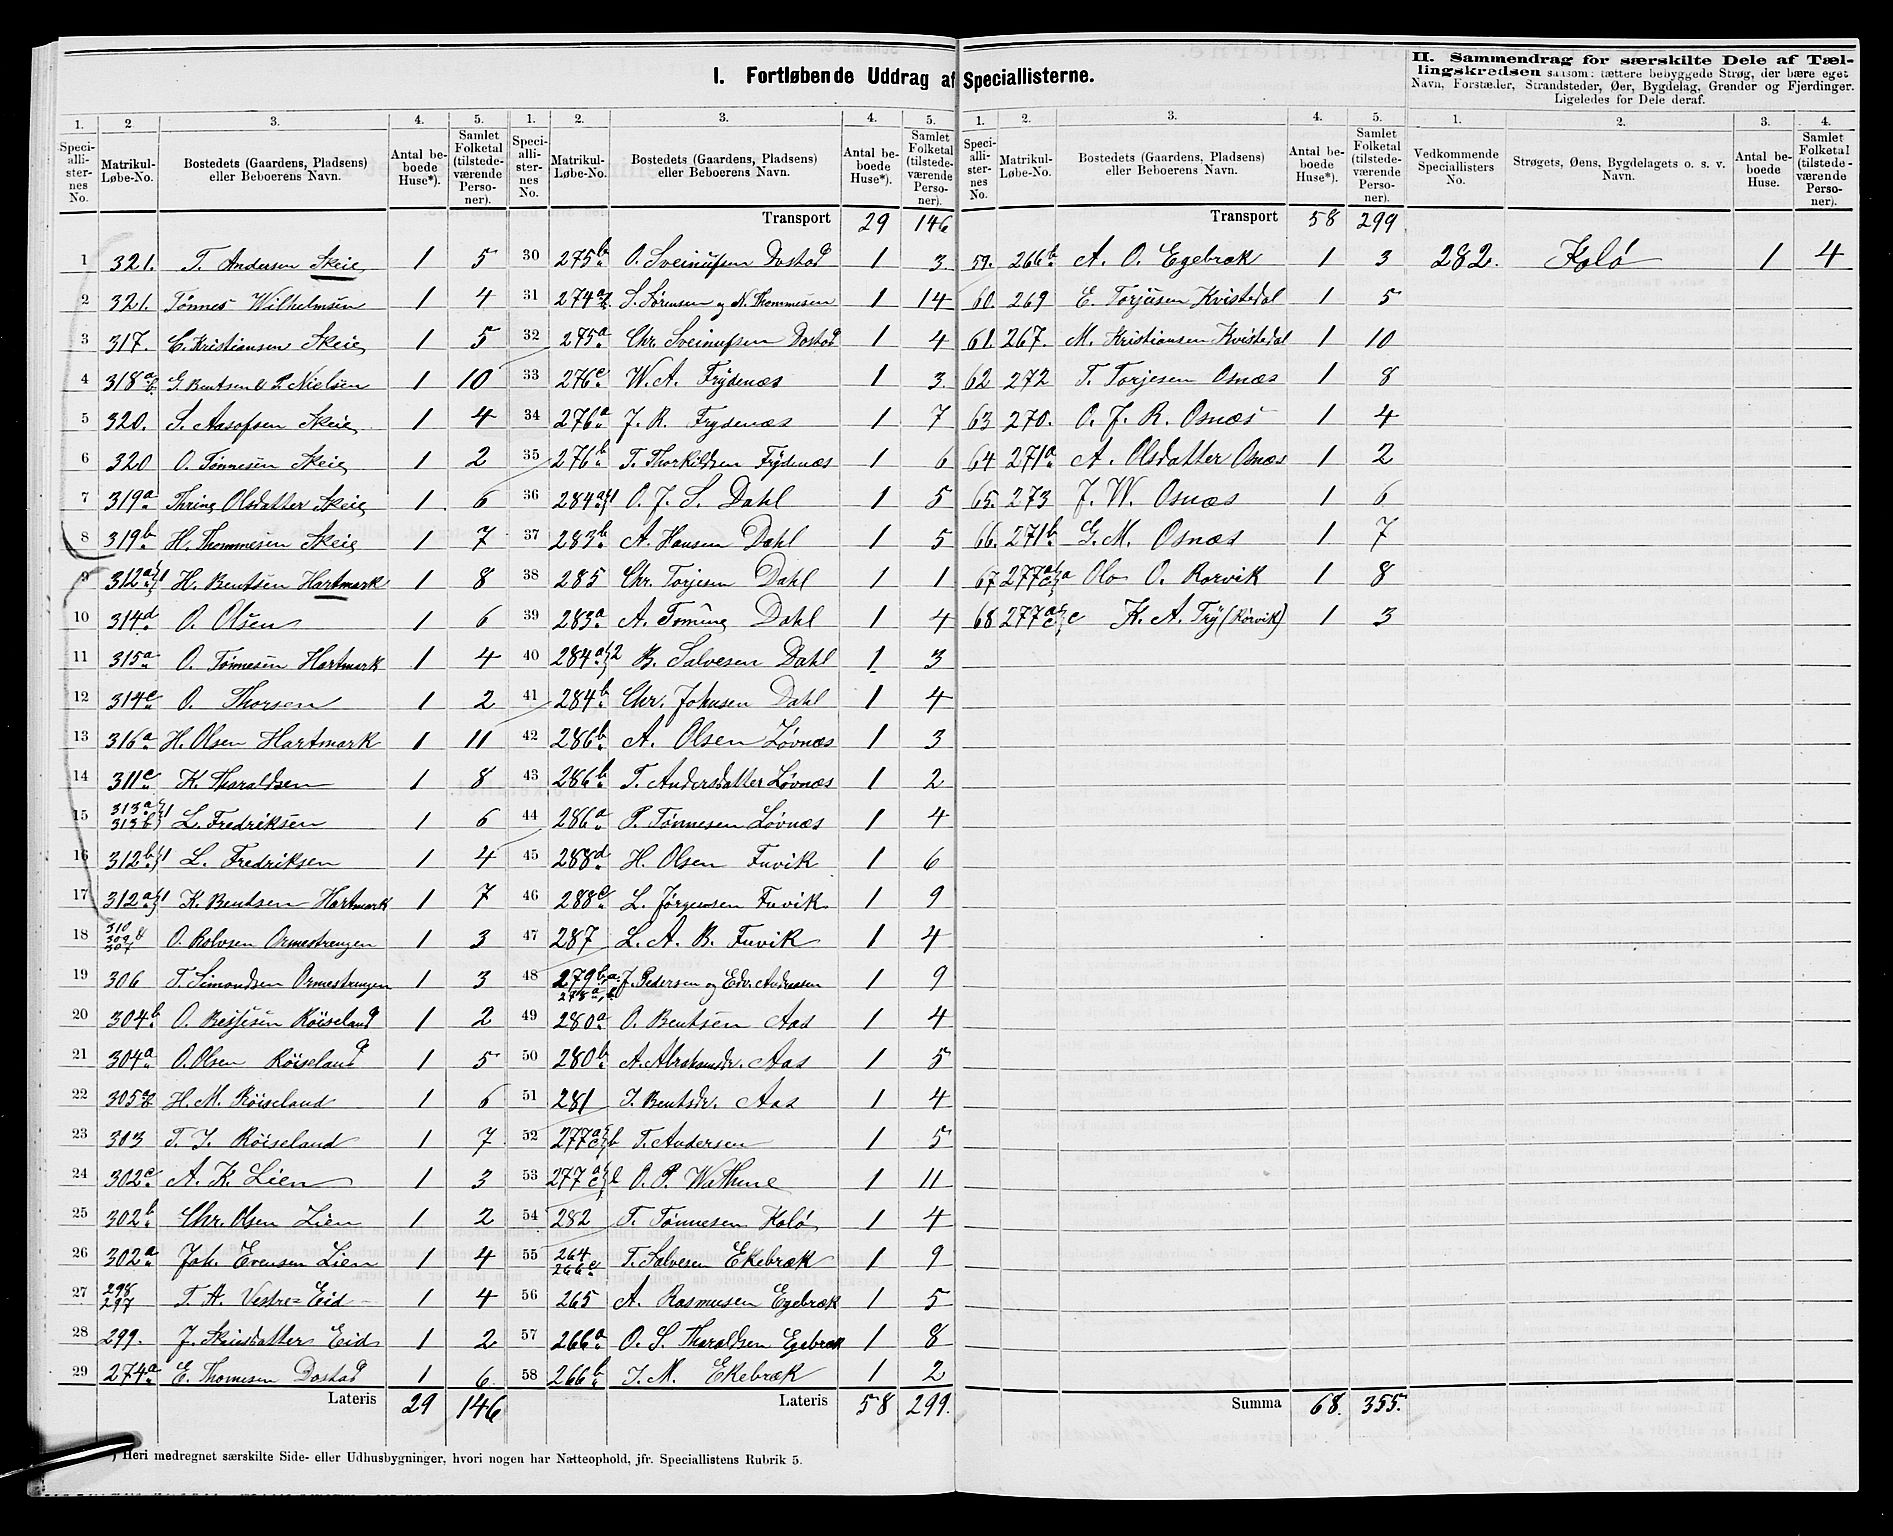 I. Fortløbende Uddrag af Speciallisterne.
II. Sammendrag for særskilte Dele af Tællingskredsen saasom: tættere bebyggede Strøg, der bære eget
Navn, Forstæder, Strandsteder, Øer, Bygdelag, Grender og Fjerdinger.
Ligeledes for Dele deraf.
1. Speciallisternes No. | 2. Matrikul-Løbe-No. | 3. Bostedets (Gaardens, Pladsens) eller Beboerens Navn. | 4. Antal beboede Huse*). | 5. Samlet Folketal (tilstedeværende Personer).
1 321. T. Andersen Skeie 1 5
2 321. Tønnes Wilhelmsen 1 4
3 317. C. Kristiansen Skeie 1 5
4 318 a b G. Bentsen & P. Nielsen 1 10
5 320. S. Aasofsen Skeie 1 4
6 320 O. Tønnesen Skeie 1 2
7 319a Thrine Olsdatter Skeie 1 6
8 319b H. Thommesen Skeie 1 7
9 312a 1 H. Bentsen Hartmark 1 8
10 314d O. Olsen 1 6
11 315a O. Tønnesen Hartmark 1 4
12 314c O. Thorsen 1 2
13 316a H. Olsen Hartmark 1 11
14 311c K. Tharaldsen 1 8
15 313a 313b 1 L. Fredriksen 1 6
16 312b 1 L. Fredriksen 1 4
17 312a 1 K. Bentsen Hartmark 1 7
18 310 309 307 O. Rolvsen Ormestrengen 1 3
19 306 T. Simondsen Ormestrengen 1 3
20 304b O. Bessesen Röiseland 1 2
21 304a O. Olsen Röiseland 1 5
22 305 H. M. Röiseland 1 6
23 303 T. J. Röiseland 1 7
24 302c A. K. Lien 1 3
25 302b Chr. Olsen Lien 1 2
26 302a Joh. Evensen Lien 1 4
27 298 297 T. A. Vestre-Eid 1 4
28 299. J. Steisdatter Eid 1 2
29 274a E. Thomesen Dostad 1 6
Lateris 29 146
1. Speciallisternes No. | 2. Matrikul-Løbe-No. | 3. Bostedets (Gaardens, Pladsens) eller Beboerens Navn. | 4. Antal beboede Huse*). | 5. Samlet Folketal (tilstedeværende Personer).
Transport 29 146
30 275b O. Sveinufsen Dostad 1 3
31 274 S. Sørensen og N. Thommesen 1 14
32 275a Chr. Sveinufsen Dostad 1 4
33 276c W. A. Frydenæs 1 3
34 276a J. R. Frydenæs 1 7
35 276b T. Thorkildsen Frydenæs 1 6
36 284a 1 O. J. S. Dahl 1 5
37 283b A. Hansen Dahl 1 5
38 285 Chr. Torjesen Dahl 1 1
39 283a A. Tomine Dahl 1 4
40 284a 2 B. Salvesen Dahl 1 3
41 284b Chr. Johnsen Dahl 1 4
42 286b A. Olsen Løvnæs 1 3
43 286b T. Andersdatter Løvnæs 1 2
44 286a P. Tönnesen Løvnæs 1 4
45 288d H. Olsen Fuvik 1 6
46 288c L. Jörgensen Fuvik 1 9
47 287 L. A. B. Fuvik 1 4
48 279b,a 278a,b J. Pedersen og Edv. Andreasen 1 9
49 280a O. Bentsen Aas 1 4
50 280b A. Abrahamsdr. Aas 1 5
51 281 I. Bentsdr. Aas 1 4
52 277 a c b T. Andersen 1 5
53 277 a c l O. P. Wathne 1 11
54 282 T. Tönnesen Kolö 1 4
55 264 266c T. Salvesen Ekebræk 1 9
56 265 A. Rasmusen Egebræk 1 5
57 266a O. S. Tharaldsen Egebræk 1 8
58 266b I. M. Ekebræk 1 2
Lateris 58 299.
1. Speciallisternes No. | 2. Matrikul-Løbe-No. | 3. Bostedets (Gaardens, Pladsens) eller Beboerens Navn. | 4. Antal beboede Huse*). | 5. Samlet Folketal (tilstedeværende Personer).
Transport 58 299
59. 266b A. O. Egebræk 1 3
60. 269 E. Torjusen Kvistedal 1 5
61. 267. M. Kristiansen Kvistedal 1 10
62 272 T. Torjesen Osnæs 1 8
63 270. O. J. R. Osnæs 1 4
64 271a A. Olsdatter Osnæs 1 2
65. 273 J. W. Osnæs 1 6
66. 271b G. M. Osnæs 1 7
67 277 a c a Ole O. Rorvik 1 8
68 277 a c c K. A. Try (Rörvik) 1 3
Summa 68. 355.
1. Vedkommende Speciallisters No. | 2. Strøgets, Øens, Bygdelagets o. s. v. Navn. | 3. Antal beboede Huse. | 4. Samlet Folketal (tilstedeværende Personer).
282. Kolö 1 4
*) Heri medregnet særskilte Side- eller Udhusbygninger, hvori nogen har Natteophold, jfr. Speciallistens Rubrik 5.